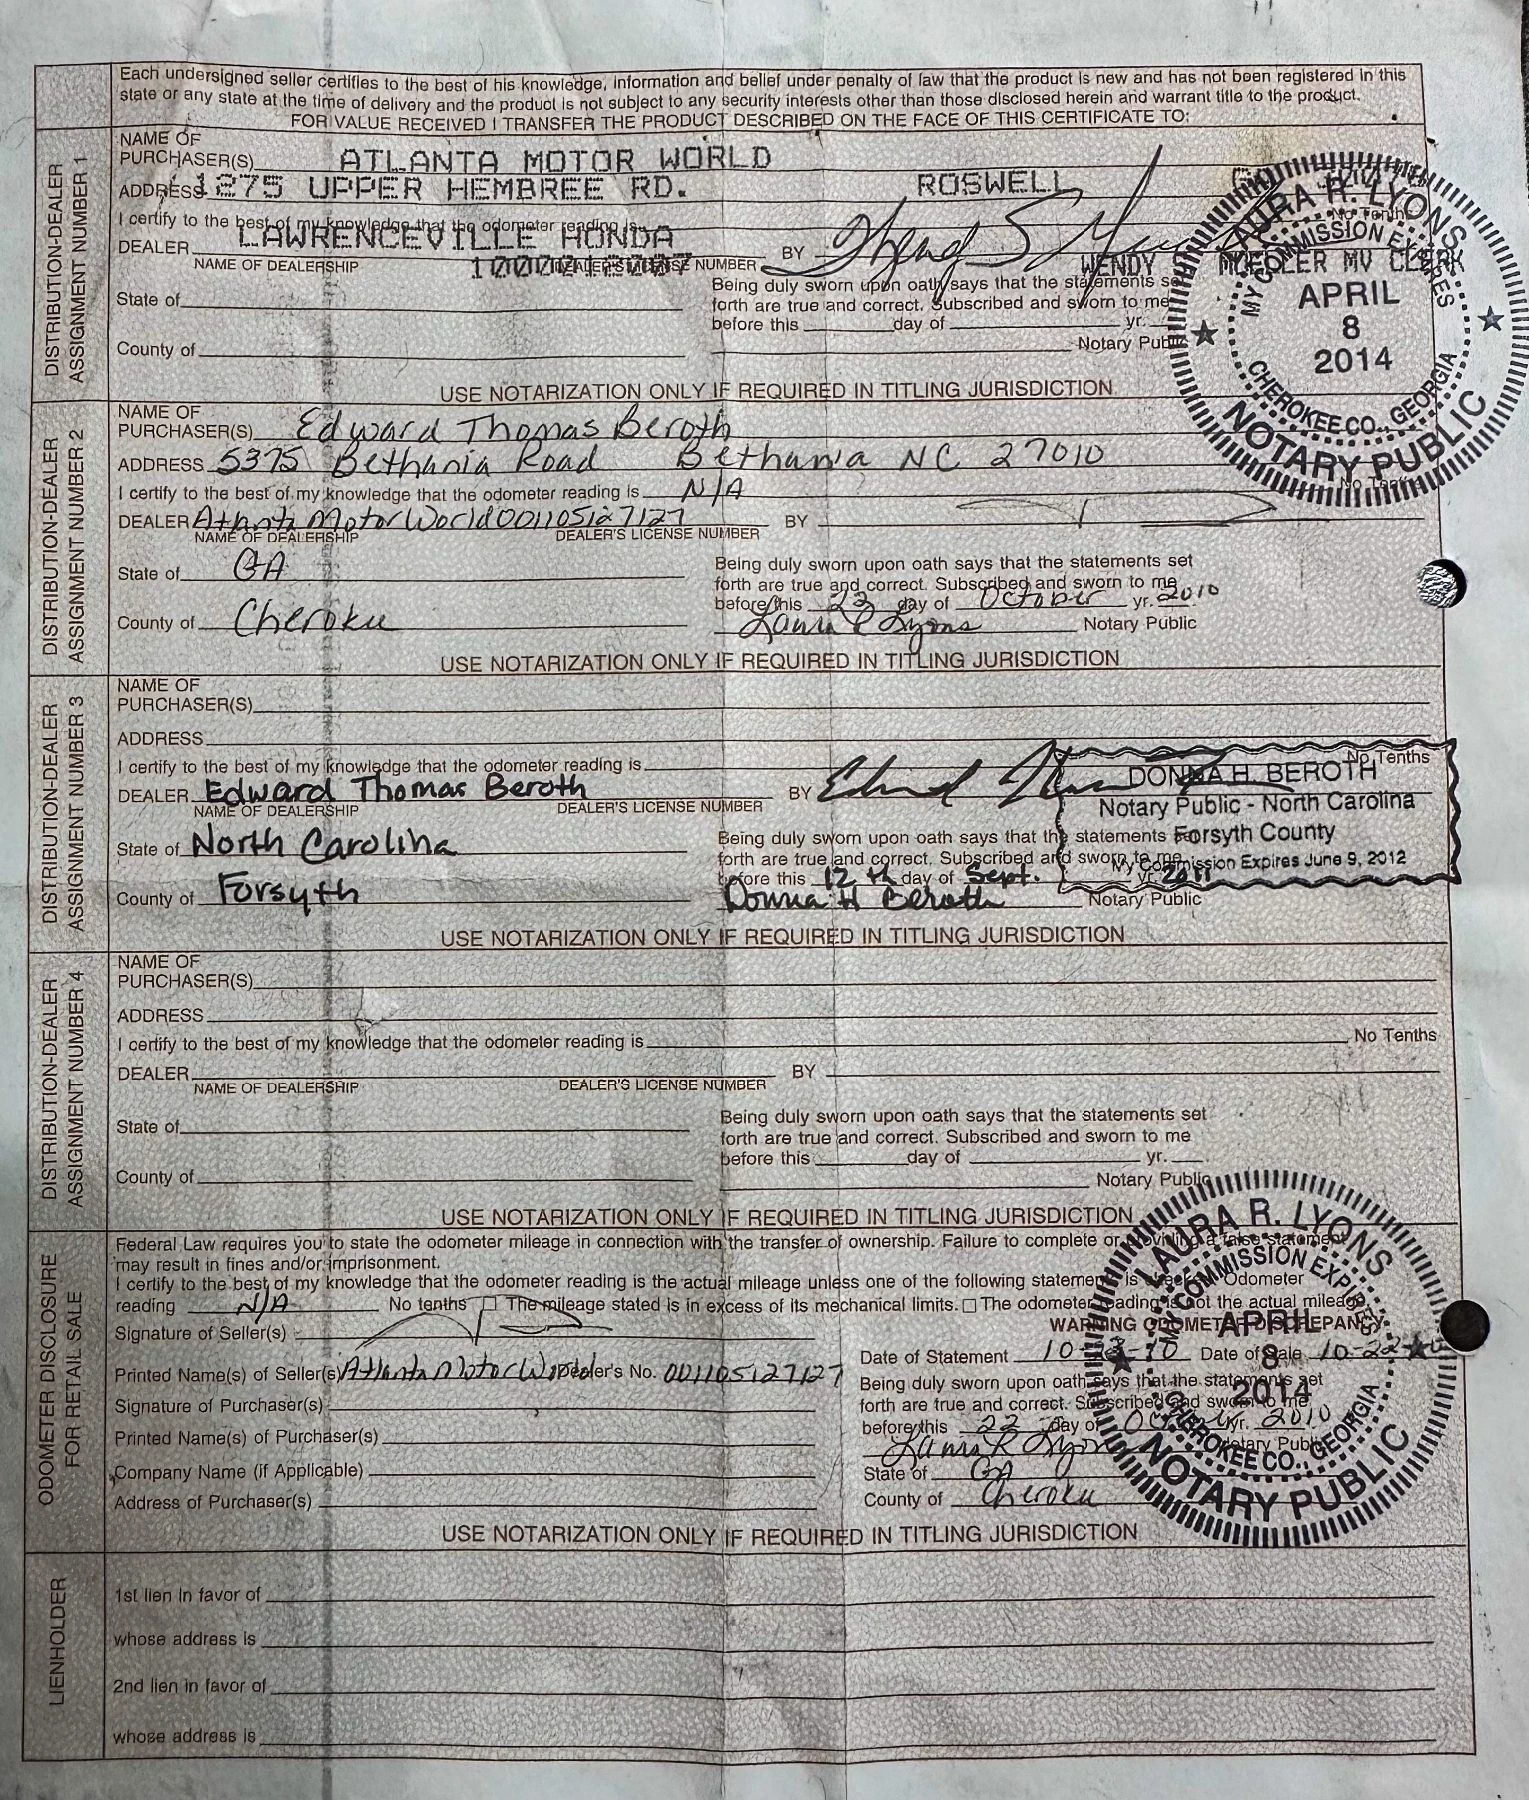 Each undersigned seller certifies to the best of his knowledge, information and belief under penalty of law that the product is new and has not been registered in this
state or any state at the time of delivery and the product is not subject to any security interests other than those disclosed herein and warrant title to the product.
FOR VALUE RECEIVED I TRANSFER THE PRODUCT DESCRIBED ON THE FACE OF THIS CERTIFICATE TO:
DISTRIBUTION-DEALER
ASSIGNMENT NUMBER 1
NAME OF
PURCHASER(S) ATLANTA MOTOR WORLD
ADDRESS 1275 UPPER HEMBREE RD. ROSWELL
I certify to the best of my knowledge that the odometer reading is No Tenths
DEALER LAWRENCEVILLE HONDA BY
NAME OF DEALERSHIP DEALER'S LICENSE NUMBER WENDY MV CLERK
Being duly sworn upon oath says that the statements set
State of forth are true and correct. Subscribed and sworn to me
before this day of yr.
County of Notary Public
USE NOTARIZATION ONLY IF REQUIRED IN TITLING JURISDICTION
LAURA R. LYONS
MY COMMISSION EXPIRES
APRIL
8
2014
CHEROKEE CO., GEORGIA
NOTARY PUBLIC
DISTRIBUTION-DEALER
ASSIGNMENT NUMBER 2
NAME OF
PURCHASER(S) Edward Thomas Beroth
ADDRESS 5375 Bethania Road Bethania NC 27010
I certify to the best of my knowledge that the odometer reading is N/A No Tenths
DEALER Atlanta Motor World 001105127127 BY
NAME OF DEALERSHIP DEALER'S LICENSE NUMBER
State of GA Being duly sworn upon oath says that the statements set
forth are true and correct. Subscribed and sworn to me
before this 22 day of October yr. 2010
County of Cherokee Laura R Lyons Notary Public
USE NOTARIZATION ONLY IF REQUIRED IN TITLING JURISDICTION
DISTRIBUTION-DEALER
ASSIGNMENT NUMBER 3
NAME OF
PURCHASER(S)
ADDRESS
I certify to the best of my knowledge that the odometer reading is No Tenths
DEALER Edward Thomas Beroth BY
NAME OF DEALERSHIP DEALER'S LICENSE NUMBER
DONNA H. BEROTH
Notary Public - North Carolina
Forsyth County
My Commission Expires June 9, 2012
State of North Carolina Being duly sworn upon oath says that the statements set
forth are true and correct. Subscribed and sworn to me
before this 12th day of Sept. yr. 2011
County of Forsyth Donna H Beroth Notary Public
USE NOTARIZATION ONLY IF REQUIRED IN TITLING JURISDICTION
DISTRIBUTION-DEALER
ASSIGNMENT NUMBER 4
NAME OF
PURCHASER(S)
ADDRESS
I certify to the best of my knowledge that the odometer reading is No Tenths
DEALER BY
NAME OF DEALERSHIP DEALER'S LICENSE NUMBER
Being duly sworn upon oath says that the statements set
State of forth are true and correct. Subscribed and sworn to me
before this day of yr.
County of Notary Public
USE NOTARIZATION ONLY IF REQUIRED IN TITLING JURISDICTION
ODOMETER DISCLOSURE
FOR RETAIL SALE
Federal Law requires you to state the odometer mileage in connection with the transfer of ownership. Failure to complete or providing a false statement
may result in fines and/or imprisonment.
I certify to the best of my knowledge that the odometer reading is the actual mileage unless one of the following statements is checked. Odometer
reading N/A No tenths The mileage stated is in excess of its mechanical limits. The odometer reading is not the actual mileage.
WARNING ODOMETER DISCREPANCY.
Signature of Seller(s)
Date of Statement Date of Sale 10-22-
Printed Name(s) of Seller(s) Atlanta Motor World Dealer's No. 001105127127
Being duly sworn upon oath says that the statements set
Signature of Purchaser(s) forth are true and correct. Subscribed and sworn to me
before this 22 day of yr. 2010
Printed Name(s) of Purchaser(s) Laura R Lyons Notary Public
Company Name (if Applicable) State of GA
Address of Purchaser(s) County of Cherokee
USE NOTARIZATION ONLY IF REQUIRED IN TITLING JURISDICTION
LAURA R. LYONS
MY COMMISSION EXPIRES
APRIL
8
2014
CHEROKEE CO., GEORGIA
NOTARY PUBLIC
LIENHOLDER
1st lien in favor of
whose address is
2nd lien in favor of
whose address is